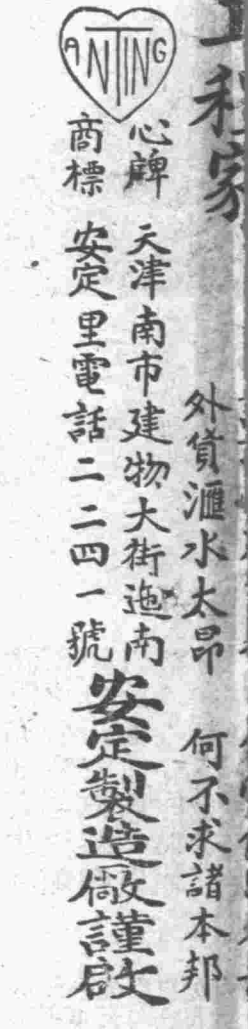 工程家
外貨滙水太昂 何不求諸本邦
ANTING
心牌
商標
天津南市建物大街迤南
安定里電話二二四一號
安定製造廠謹啟